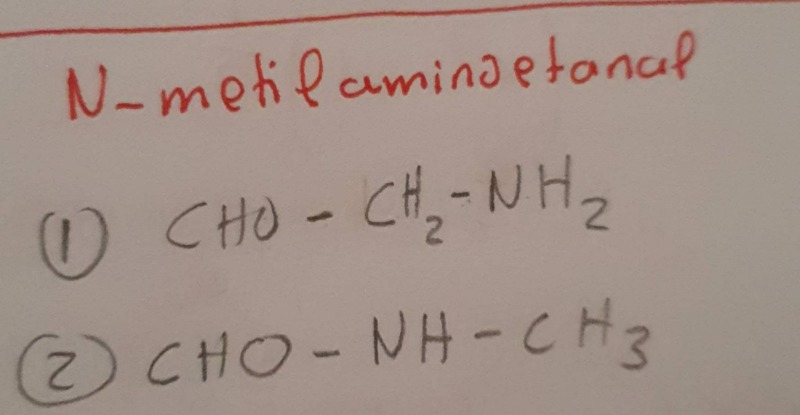 N-metilaminoetanal
① CHO - CH₂-NH₂
② CHO - NH - CH₃